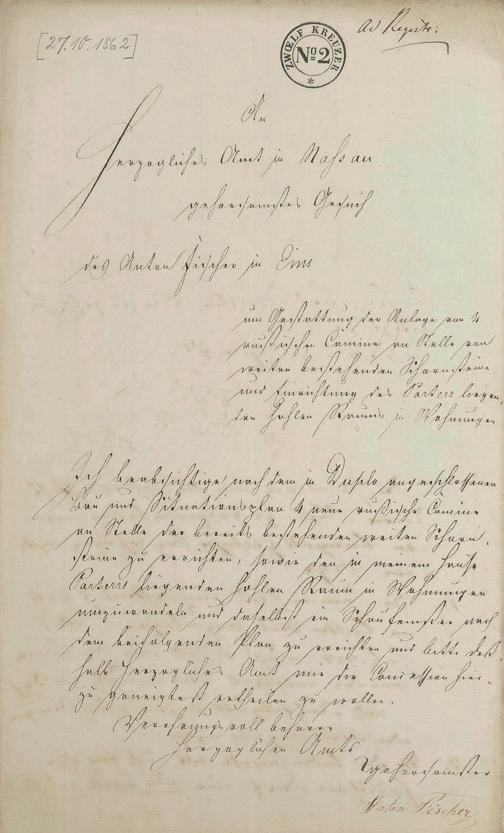 [27.10.1862]
ZWŒLF KREUZER
No 2
Ad Registr:
An
Herzogliches Amt in Nassau
gehorsamstes Gesuch
des Anton Fischer in Ems
um Gestattung der Anlage von 4
russischen Camine an Stelle von
weiten bestehenden Schornsteine
und Einrichtung des Parterre liegen-
den hohlen Raums in Wohnungen
Ich beabsichtige nach dem in Duplo angeschlossenen
Bau und Situationsplan 4 neue russische Camine
an Stelle der bereits bestehenden weiten Schorn-
steine zu errichten, sowie den in meinem Hause
Parterre liegenden hohlen Raum in Wohnungen
umzuwandeln und daselbst ein Schaufenster nach
dem beifolgenden Plan zu errichten und bitte deß-
halb Herzogliches Amt mir die Concession hier-
zu geneigtest ertheilen zu wollen.
Verehrungsvoll beharre
Herzoglichen Amts
gehorsamster
Anton Fischer